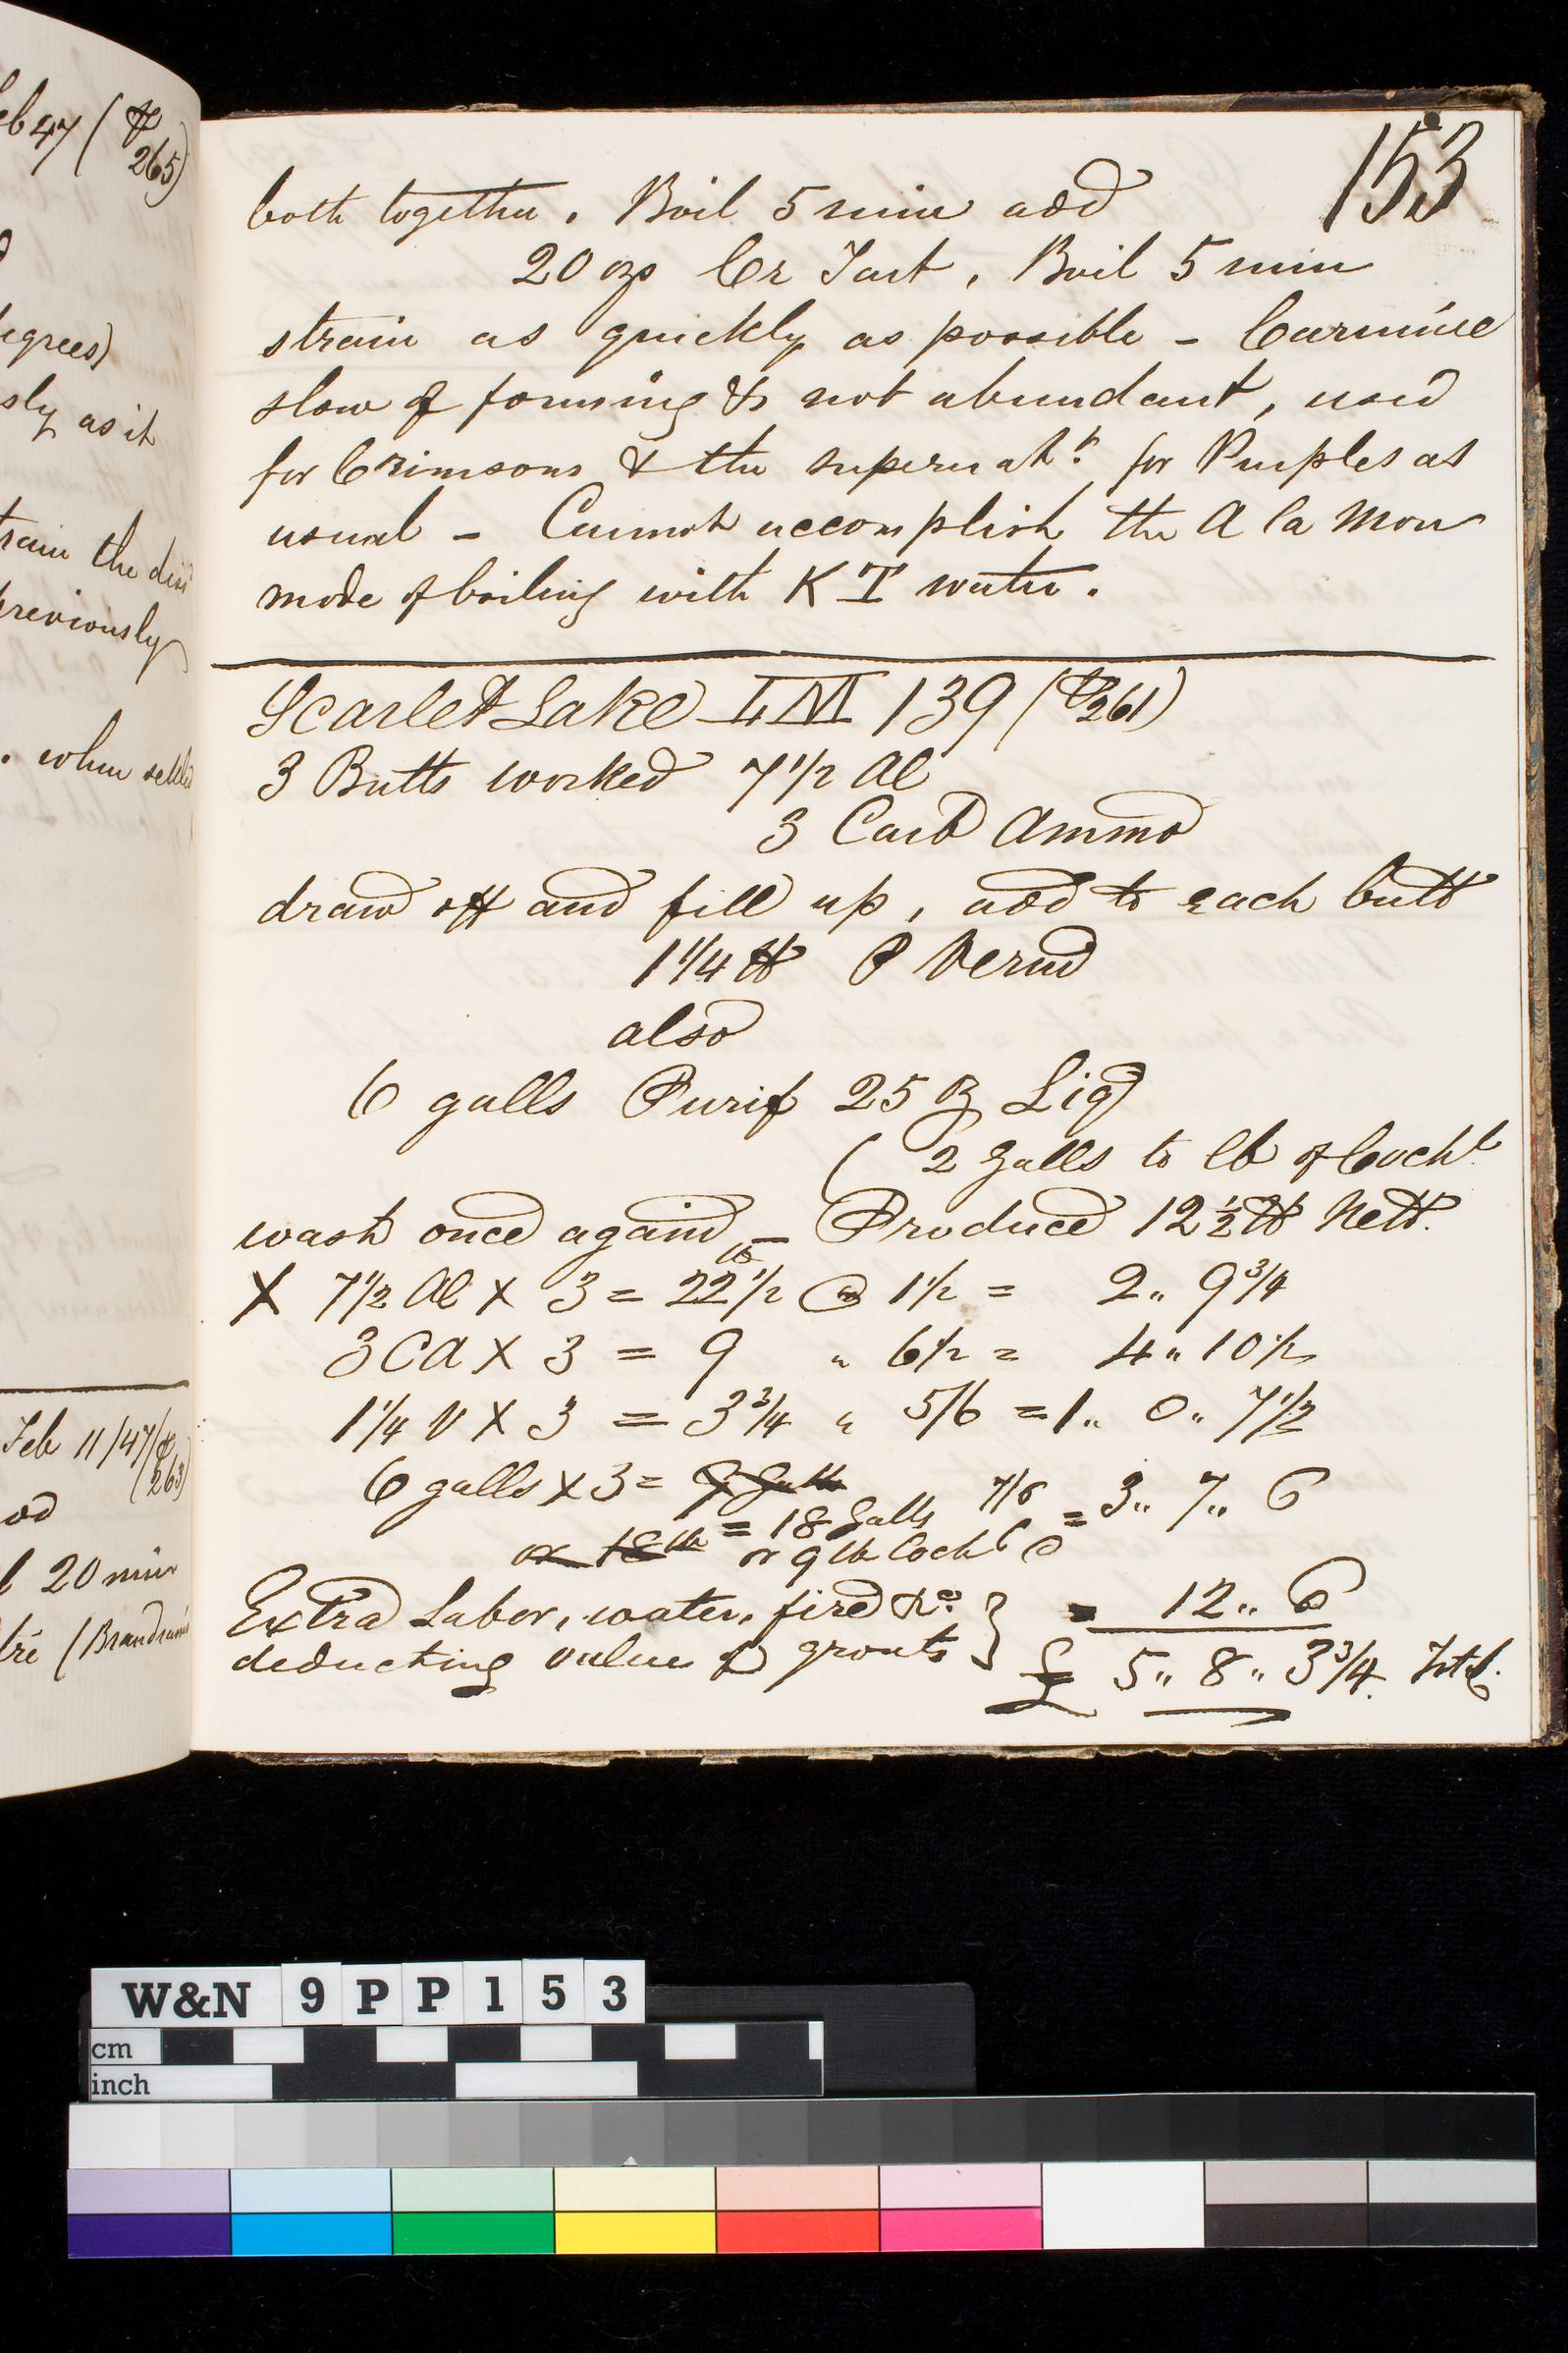 eb 47 (℔
265)
egrees)
sly as it
train the
previously
. when settled
Feb 11/47 (℔
(263)
od
l 20 min
tre (Brandram's
153
both together. Boil 5 min add
20 ozs Cr Tart, Boil 5 min
strain as quickly as possible - Carmine
slow of forming & not abundant, used
for Crimsons & the supernatt. for Purples as
usual - Cannot accomplish the A la Mon
mode of boiling with K T water.
Scarlet Lake LM 139 (℔ 261)
3 Butts worked 7 1/2 Al
3 Carb Ammo
draw off and fill up, add to each butt
1 1/4 ℔ P Verm
also
6 galls Purif 25 oz Liq
( 2 galls to lb of Cochl
wash once again - Produce 12 1/2 ℔ Nett.
X 7 1/2 Al X 3 = 22 1/2 lb @ 1 1/2 = 2 " 9 3/4
3 CA X 3 = 9 " 6 1/2 = 4 " 10 1/2
1 1/4 V X 3 = 3 3/4 " 5/6 = 1 " 0 " 7 1/2
6 galls X 3 = 9 Galls
or 18 lb = 18 Galls 7/6 = 3 " 7 " 6
or 9 lb Cochl @
Extra Labor, water, fire &c. } = 12 " 6
deducting value of grouts } £ 5 " 8 " 3 3/4. Totl.
W&N 9 P P 1 5 3
cm
inch